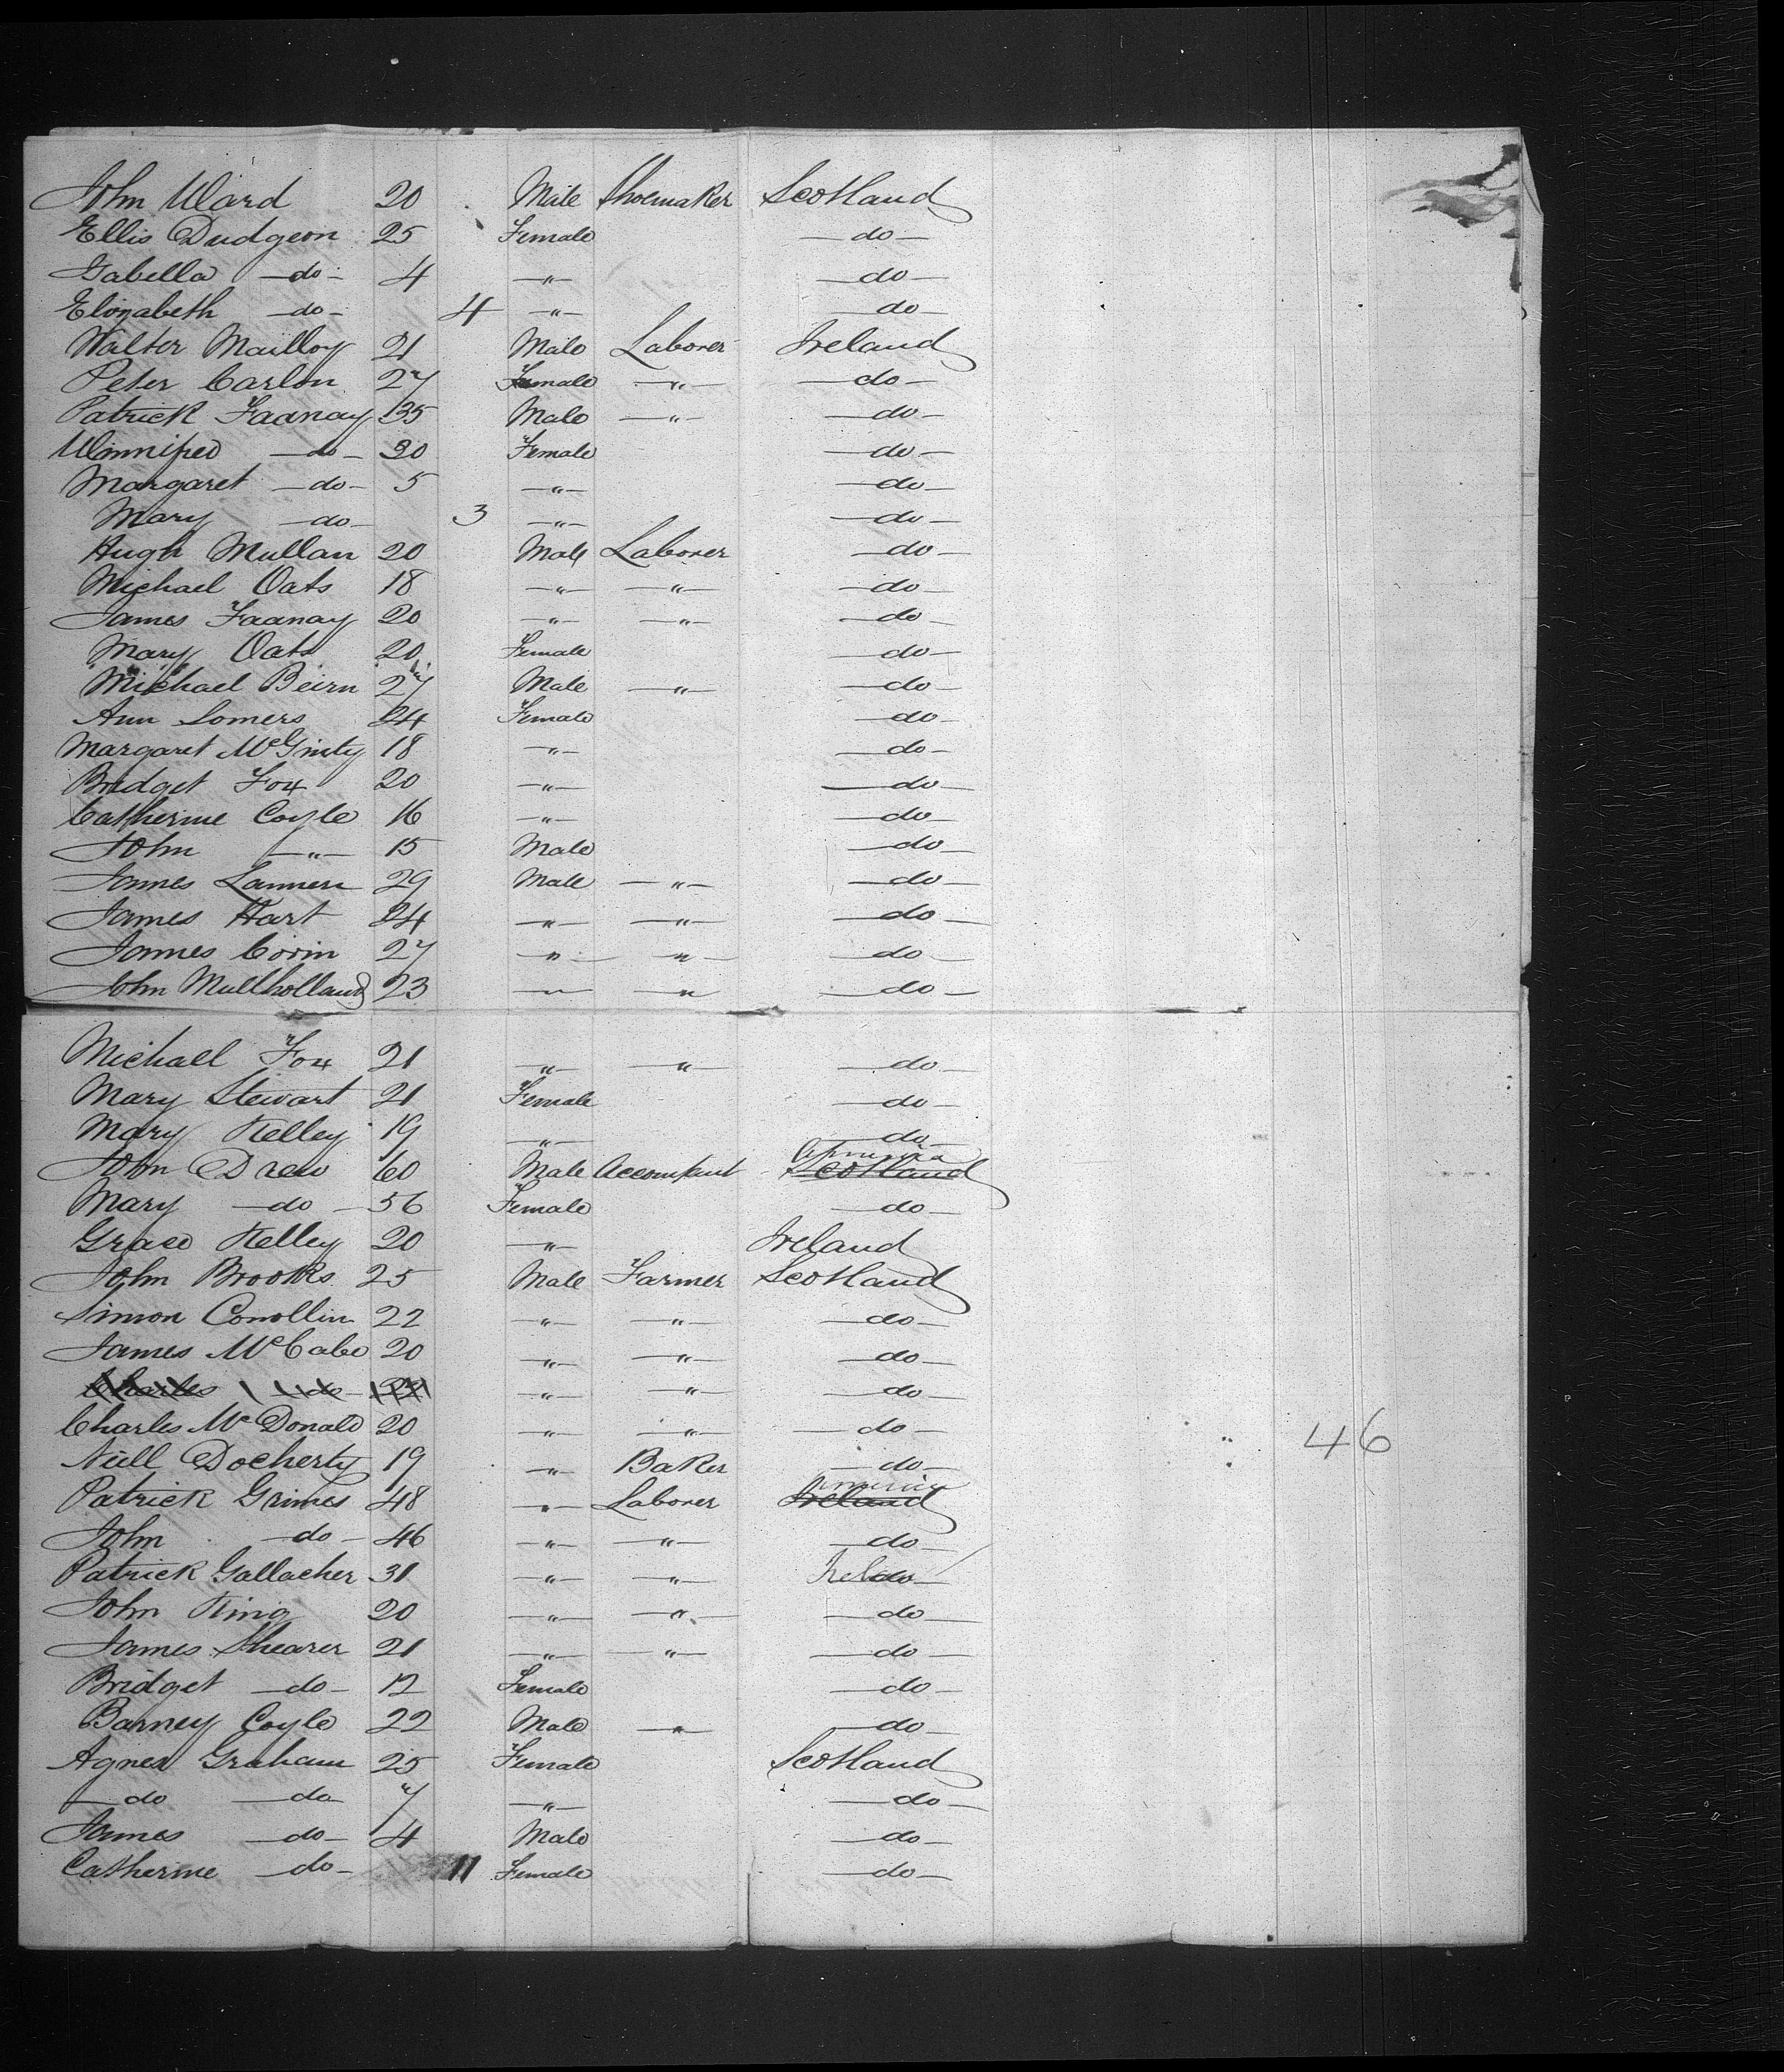 John Ward 20 Male Shoemaker Scotland
Ellis Dudgeon 25 Female — do —
Isabella — do - 4 — " — — do —
Elizabeth — do - 4 — " — — do —
Walter Mailloy 21 Male Laborer Ireland
Peter Carlon 27 Female — " — — do —
Patrick Faanay 35 Male — " — — do —
Winnifred — do - 30 Female — do —
Margaret — do - 5 — " — — do —
Mary — do - 3 — " — — do —
Hugh Mullan 20 Male Laborer — do —
Michael Oats 18 — " — — " — — do —
James Faanay 20 — " — — " — — do —
Mary Oats 20 Female — do —
Michael Beirn 27 Male — " — — do —
Ann Somers 24 Female — do —
Margaret McGinty 18 — " — — do —
Bridget Fox 20 — " — — do —
Catherine Coyle 16 — " — — do —
John — " — 15 Male — do —
James Lannen 29 Male — " — — do —
James Hart 24 — " — — " — — do —
James Corin 27 — " — — " — — do —
John Mullholland 23 — " — — " — — do —
Michael Fox 21 — " — — " — — do —
Mary Stewart 21 Female — do —
Mary Kelley 19 — " — — do —
America
John Drew 60 Male Accomptant Scotland
Mary — do — 56 Female — do —
Grace Kelley 20 — " — Ireland
John Brooks 25 Male Farmer Scotland
Simon Conollin 22 — " — — " — — do —
James McCabe 20 — " — — " — — do —
Charles — do — — " — — " — — do —
Charles McDonald 20 — " — — " — — do —
Neill Docherty 19 — " — Baker — do — 46
America
Patrick Grimes 48 — " — Laborer Ireland
John — do — 46 — " — — " — — do —
Patrick Gallacher 31 — " — — " — — do —
John King 20 — " — — " — — do —
James Shearer 21 — " — — " — — do —
Bridget — do - 12 Female — do —
Barney Coyle 22 Male — " — — do —
Agnes Graham 25 Female Scotland
— do — do 7 — " — — do —
James — do - 4 Male — do —
Catherine — do - 11 Female — do —